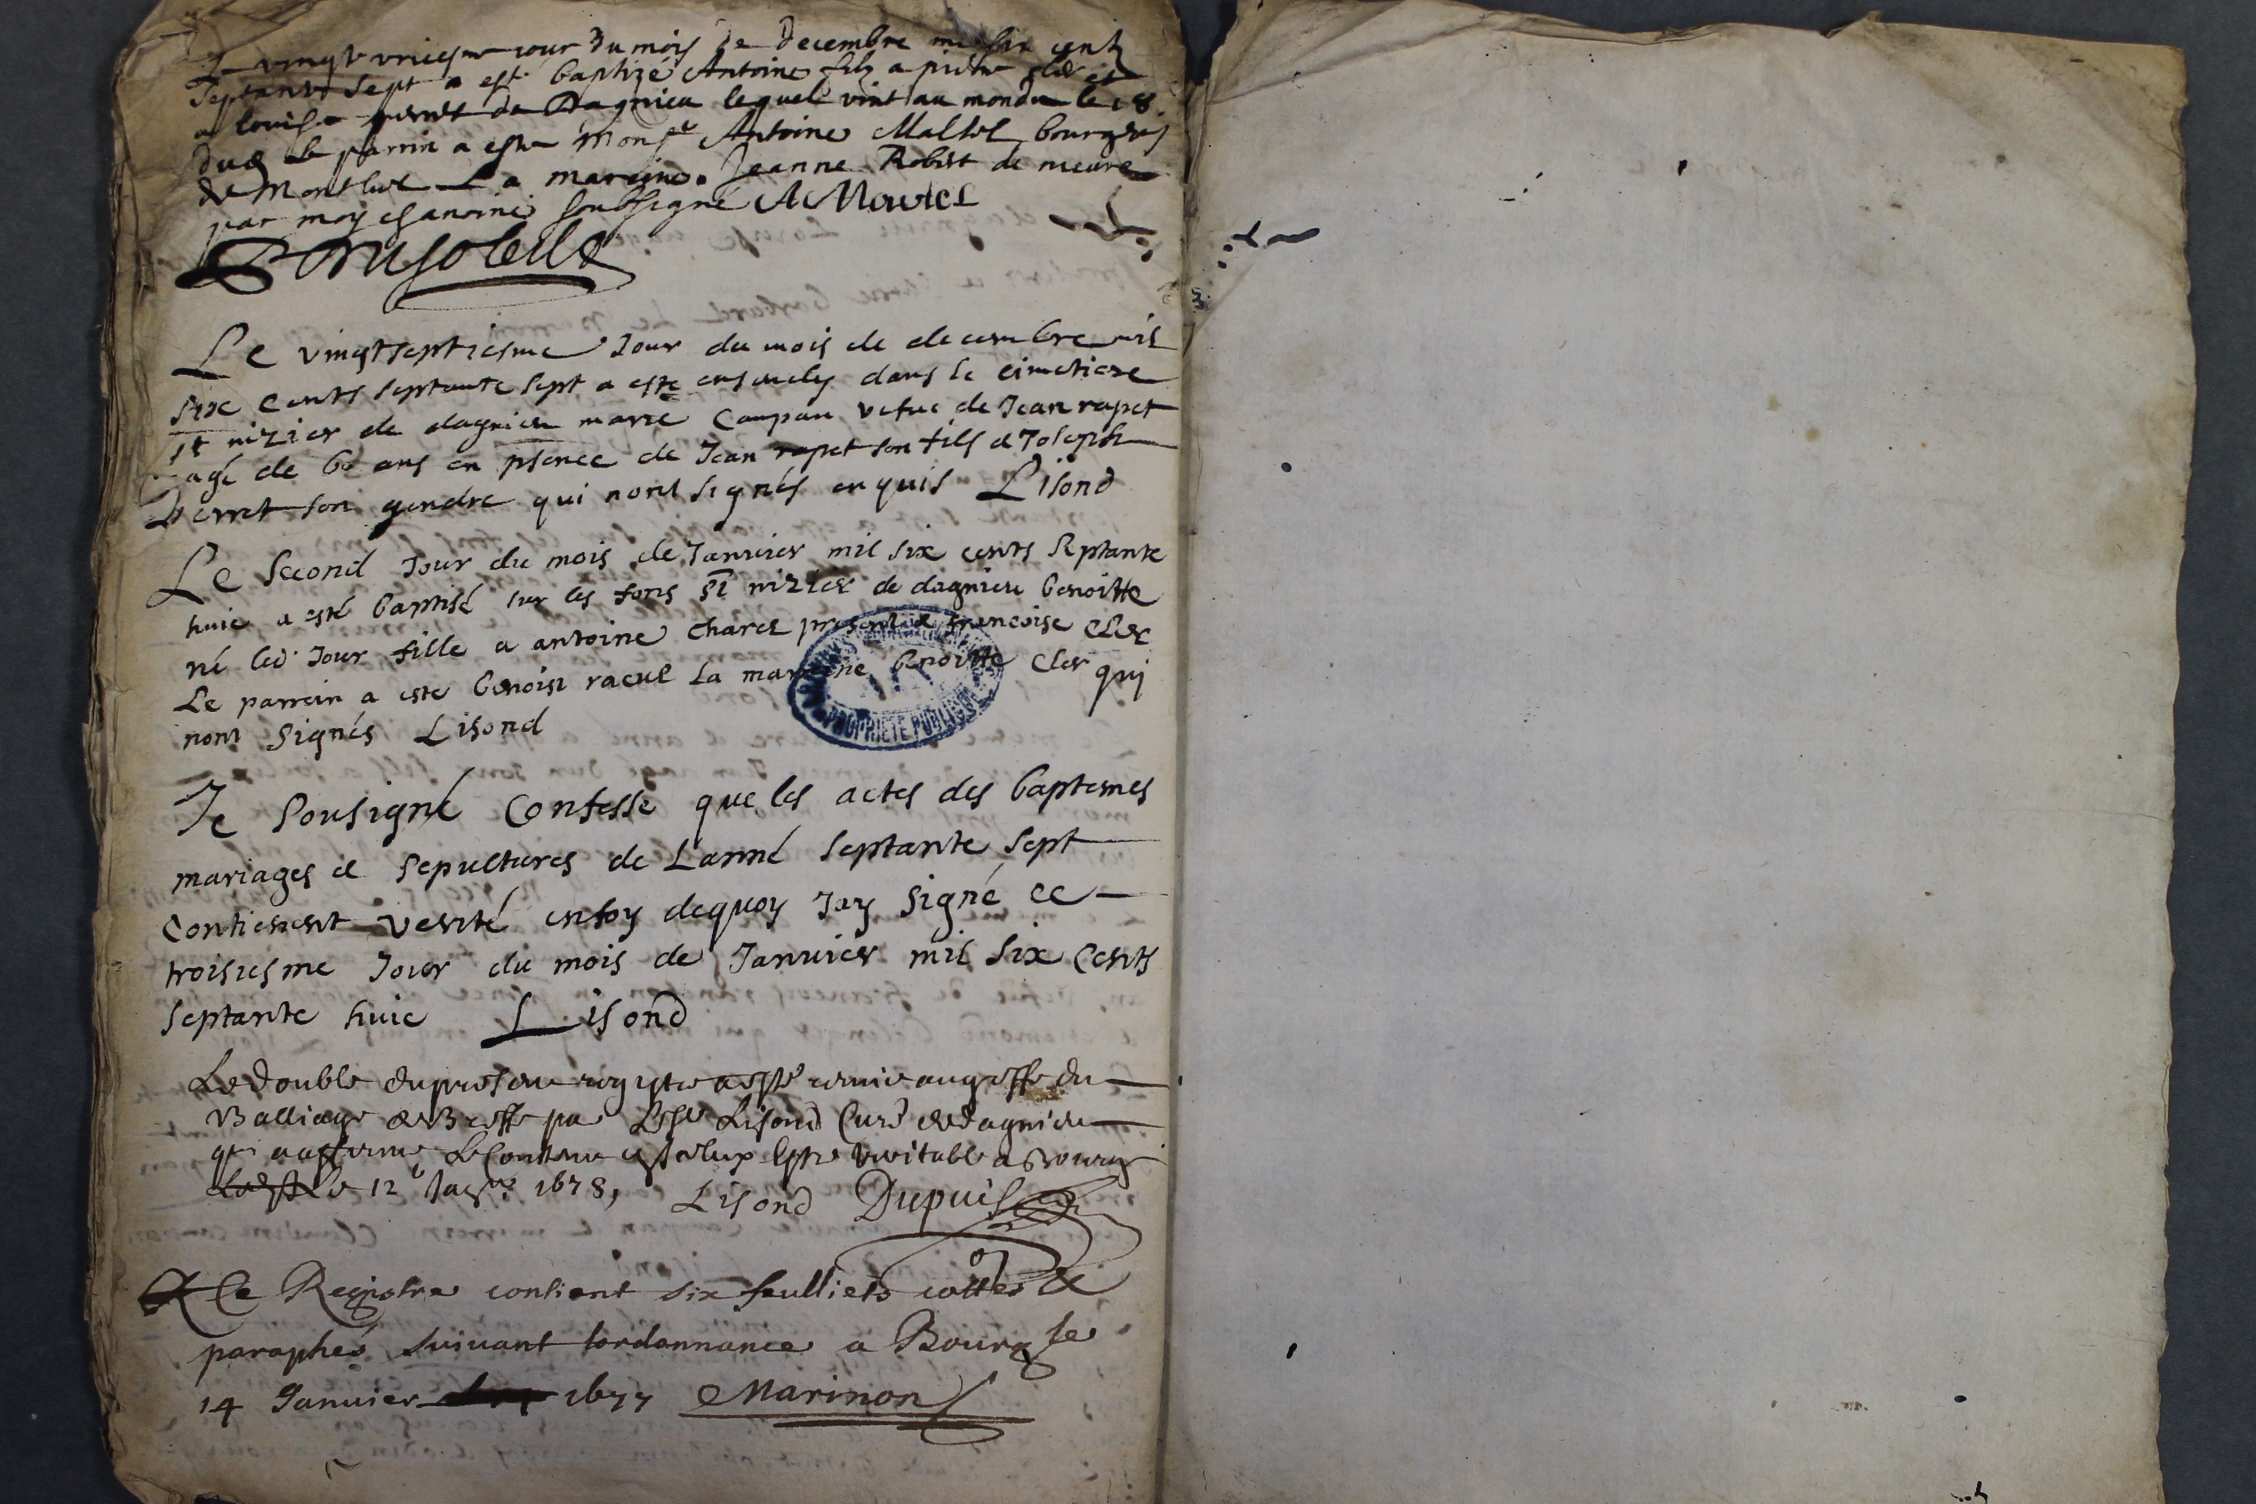 Le vingt unies^me jour du mois de decembre mil six cents
septante sept a esté baptizé Antoine filz a
a louise perret de Dagnieu lequel vint au monde le 18
dud le parrin a este Mons^r Antoine Mallet bourgeois
de Montluel La mareine Jeanne Robert de
par moy chanoine soubsigné A Mallet
Le vingtseptiesme Jour du mois de decembre mil
six cents septante sept a este ensevely dans le cimetiere
st nizier de dagnieu marie Caupan vefue de Jean rapet
agé de 60 ans en psence de Jean rapet son fils et Joseph
perret son gendre qui nont signés enquis Lisond
Le second Jour du mois de Janvier mil six cents septante
huic a esté baptisé sur les fons st nizier de dagnieu benoitte
né led Jour fille a antoine charet present et francoise cler
Le parrein a este benoist racut La marreine benoitte cler qui
nont signés Lisond
PROPRIETE PUBLIQUE
Je sousigné Confesse que les actes des baptemes
mariages et sepultures de Lanné septante sept
contienent verité en foy dequoy Jay signé ce
troisiesme Jour du mois de Janvier mil six cents
septante huic Lisond
Le double du present registre a esté remis au greffe du
Balliage de Bresse par Lisond Curé de dagnieu
qui a affirmé Le Contenu en iceluy estre veritable a Bourg
le 12 Jan^er 1678, Lisond Dupuis
Ce Registre contient six feulliets cottés &
paraphés suivant lordonnance a Bourg le
14 Janvier 1677 Marinon